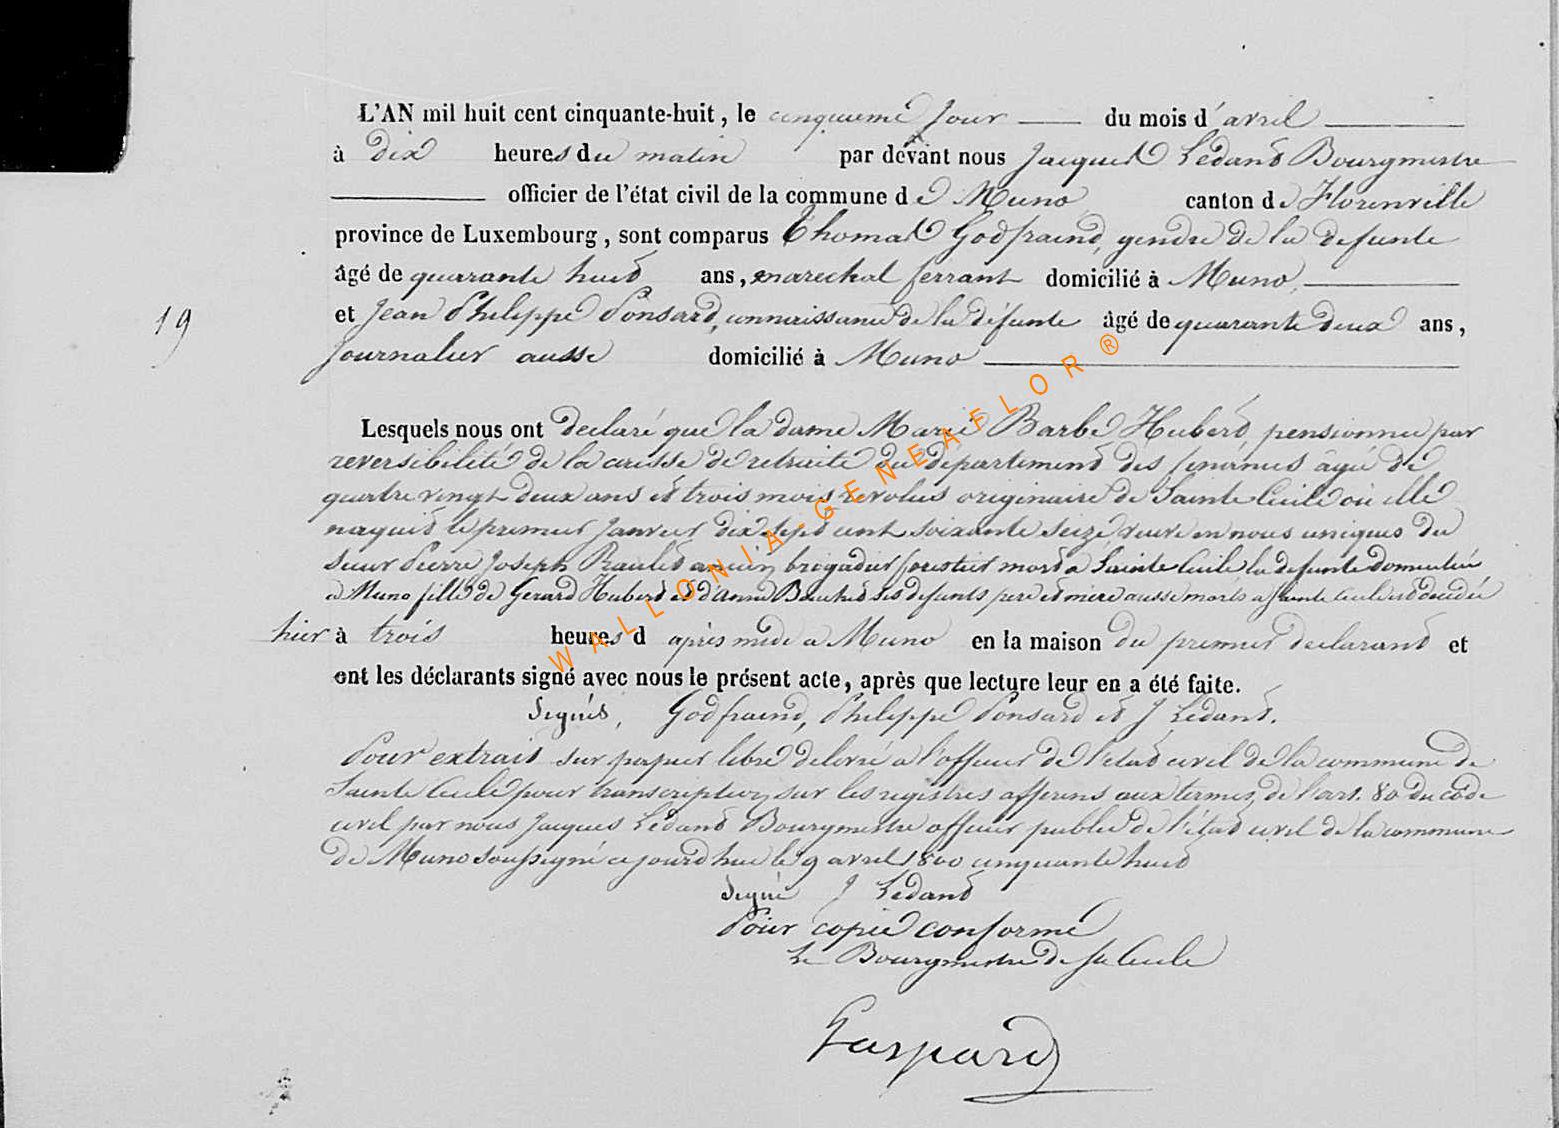 L'AN mil huit cent cinquante-huit, le cinquieme jour du mois d'avril
à dix heures du matin par devant nous Jacques Ledant Bourgmestre
officier de l'état civil de la commune de Muno canton de Florenville
province de Luxembourg, sont comparus Thomas Godfraind, gendre de la defunte
âgé de quarante huit ans, marechal ferrant domicilié à Muno,
et Jean Philippe Ponsard, connaissance de la défunte âgé de quarante deux ans,
19
journalier aussi domicilié à Muno
Lesquels nous ont declaré que la dame Marie Barbe Hubert, pensionnée par
reversibilité de la caisse de retraite du département des finances âgée de
quatre vingt deux ans et trois mois revolus originaire de Sainte Cecile où elle
naquit le premier Janvier dix sept cent soixante seize, veuve en noces uniques du
sieur Pierre Joseph Raulet ancien brigadier forestier mort a Sainte Cecile la defunte domiciliée
a Muno fille de Gerard Hubert et d'Anne ses defunts pere et mere aussi morts a Sainte Cecile est décédée
hier à trois heures d après midi a Muno en la maison du premier declarant et
ont les déclarants signé avec nous le présent acte, après que lecture leur en a été faite.
Signés, Godfraind, Philippe Ponsard et J Ledant.
Pour extrait sur papier libre delivré a l'officier de l'etat civil de la commune de
Sainte Cecile pour transcription sur les registres afferens aux termes de l'art. 80 du code
civil par nous Jacques Ledant Bourgmestre officier public de l'état civil de la commune
de Muno soussigné ce jourd'hui le 9 avril 1800 cinquante huit
Signé J Ledant
Pour copie conforme
Le Bourgmestre de Ste Cecile
Gaspard
WALLONIA-GENEAFLOR ®